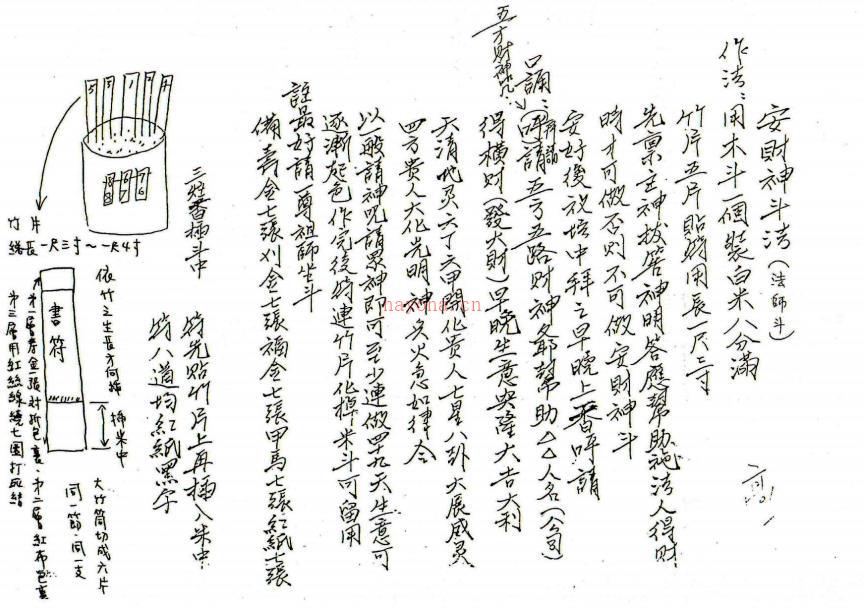 安財神斗法(法師斗)
作法:用木斗一個裝白米八分滿
竹片五片貼符用長一尺三寸
先稟主神拔答神明答應幫助施法人得財
時才可做否則不可做安財神斗
安好後放壇中拜之早晚上香呼請
口誦:呼請五方五路財神爺幫助△△人名(公司)
五方財神咒:
得橫財(發大財)早晚生意興隆大吉大利
天清地灵六丁六甲開化貴人七星八卦大展威灵
四方貴人大化光明神兵火急如律令
以一般請神咒請眾神即可至少連做四十九天生意可
逐漸起色作完後符連竹片化掉米斗可留用
註最好請一尊祖師坐斗
備壽金七張刈金七張福金七張甲馬七張紅紙七張
三炷香插斗中
符先貼竹片上再插入米中
符八道均紅紙黑字
5 3 1 2 4
8 6 7
竹片
總長一尺三寸~一尺4寸
依竹之生長方向插
書符
插米中
第一層壽金一張對折包裹,第二層紅布包裹
第三層用紅絲線繞七圈打死結
大竹筒切成六片
同一節,同一支
haxona.cn